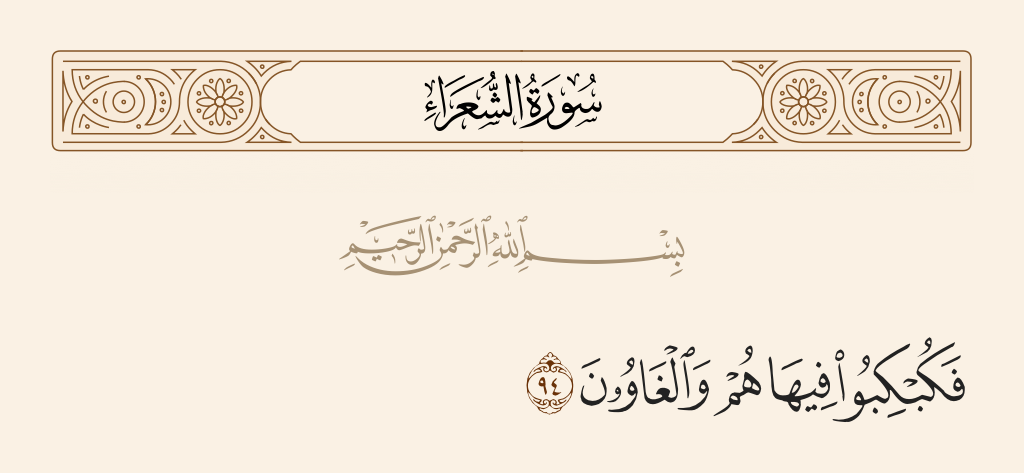 سُورَةُ الشُّعَرَاءِ
بِسْمِ ٱللَّهِ ٱلرَّحْمَٰنِ ٱلرَّحِيمِ
فَكُبْكِبُوا۟ فِيهَا هُمْ وَٱلْغَاوُۥنَ ٩٤